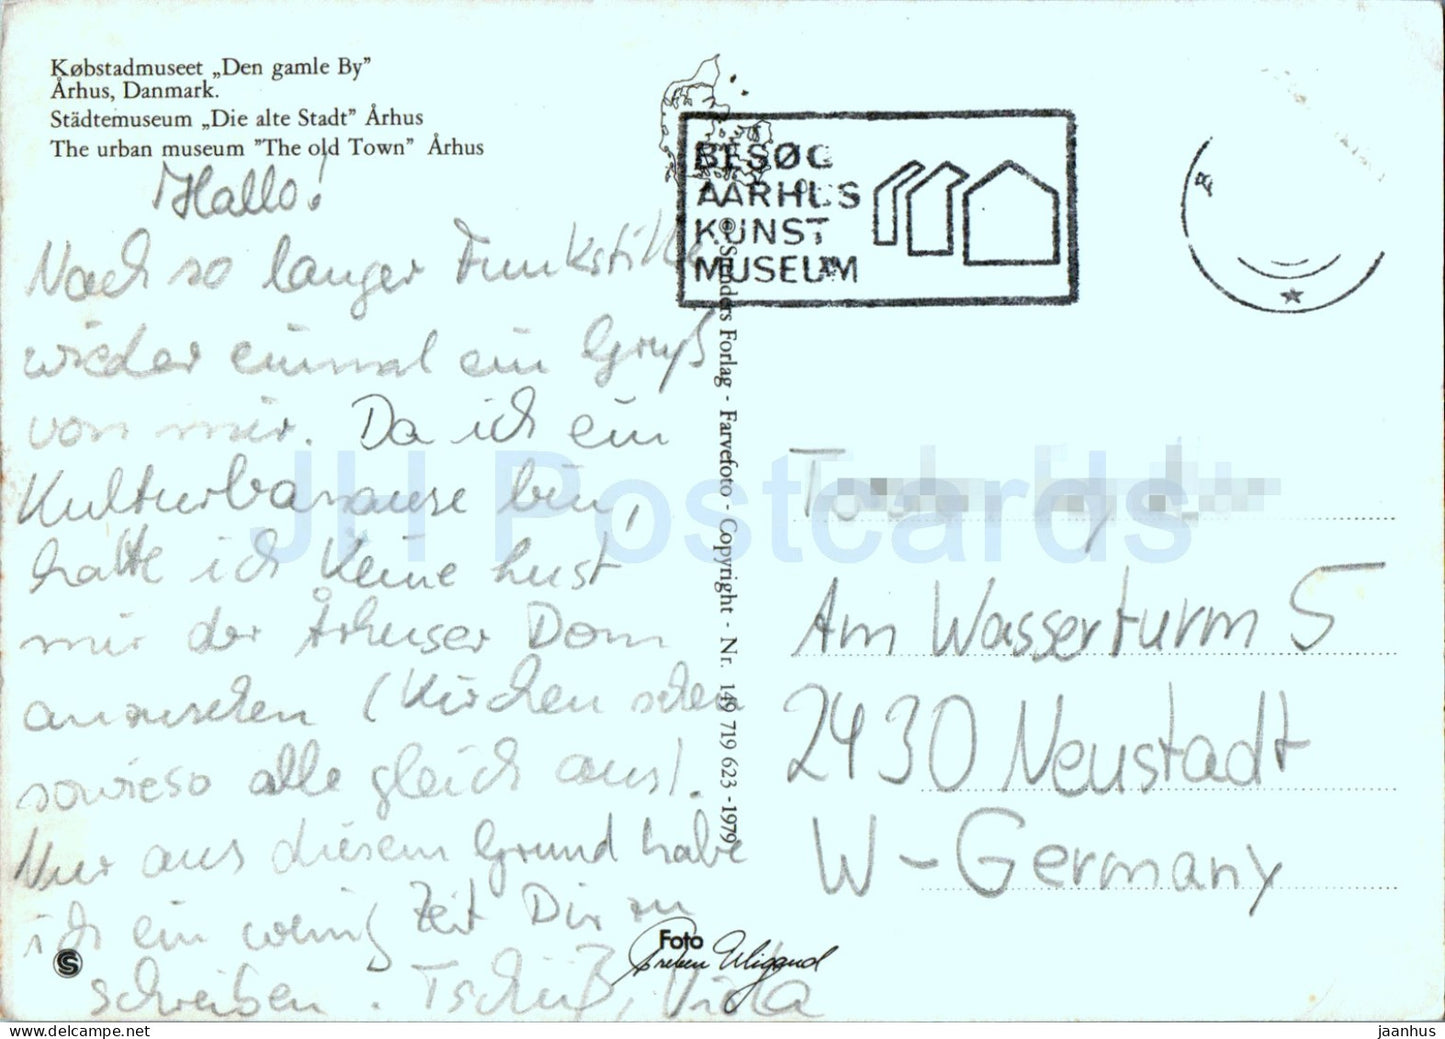 Købstadmuseet „Den gamle By”
Århus, Danmark.
Städtemuseum „Die alte Stadt” Århus
The urban museum ”The old Town” Århus
Hallo!
Nach so langer Funkstille
wieder einmal ein Gruß
von mir. Da ich ein
Kulturbanause bin,
hatte ich keine Lust
mir der Århuser Dom
anzusehen (Kirchen sehen
sowieso alle gleich aus).
Nur aus diesem Grund habe
ich ein wenig Zeit Dir zu
schreiben. Tschüß,
S
Foto
Preben Wiggand
© Sanders Forlag - Farvefoto - Copyright - Nr. 149 719 623 - 1979
BESØG
AARHUS
KUNST
MUSEUM
Am Wasserturm 5
2430 Neustadt
W-Germany
JH Postcards
jaanhus - delcampe.net